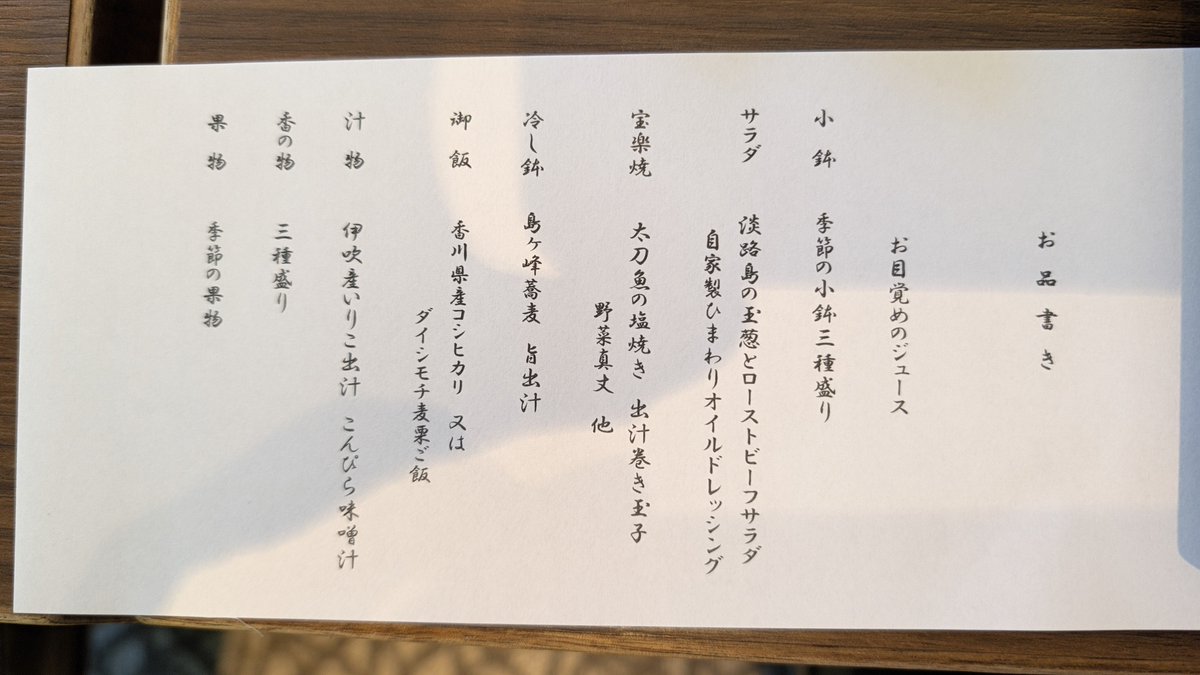 お品書き
お目覚めのジュース
小鉢 季節の小鉢三種盛り
サラダ 淡路島の玉葱とローストビーフサラダ
自家製ひまわりオイルドレッシング
宝楽焼 太刀魚の塩焼き 出汁巻き玉子
野菜真丈 他
冷し鉢 島ヶ峰蕎麦 旨出汁
御飯 香川県産コシヒカリ 又は
ダイシモチ麦栗ご飯
汁物 伊吹産いりこ出汁 こんぴら味噌汁
香の物 三種盛り
果物 季節の果物